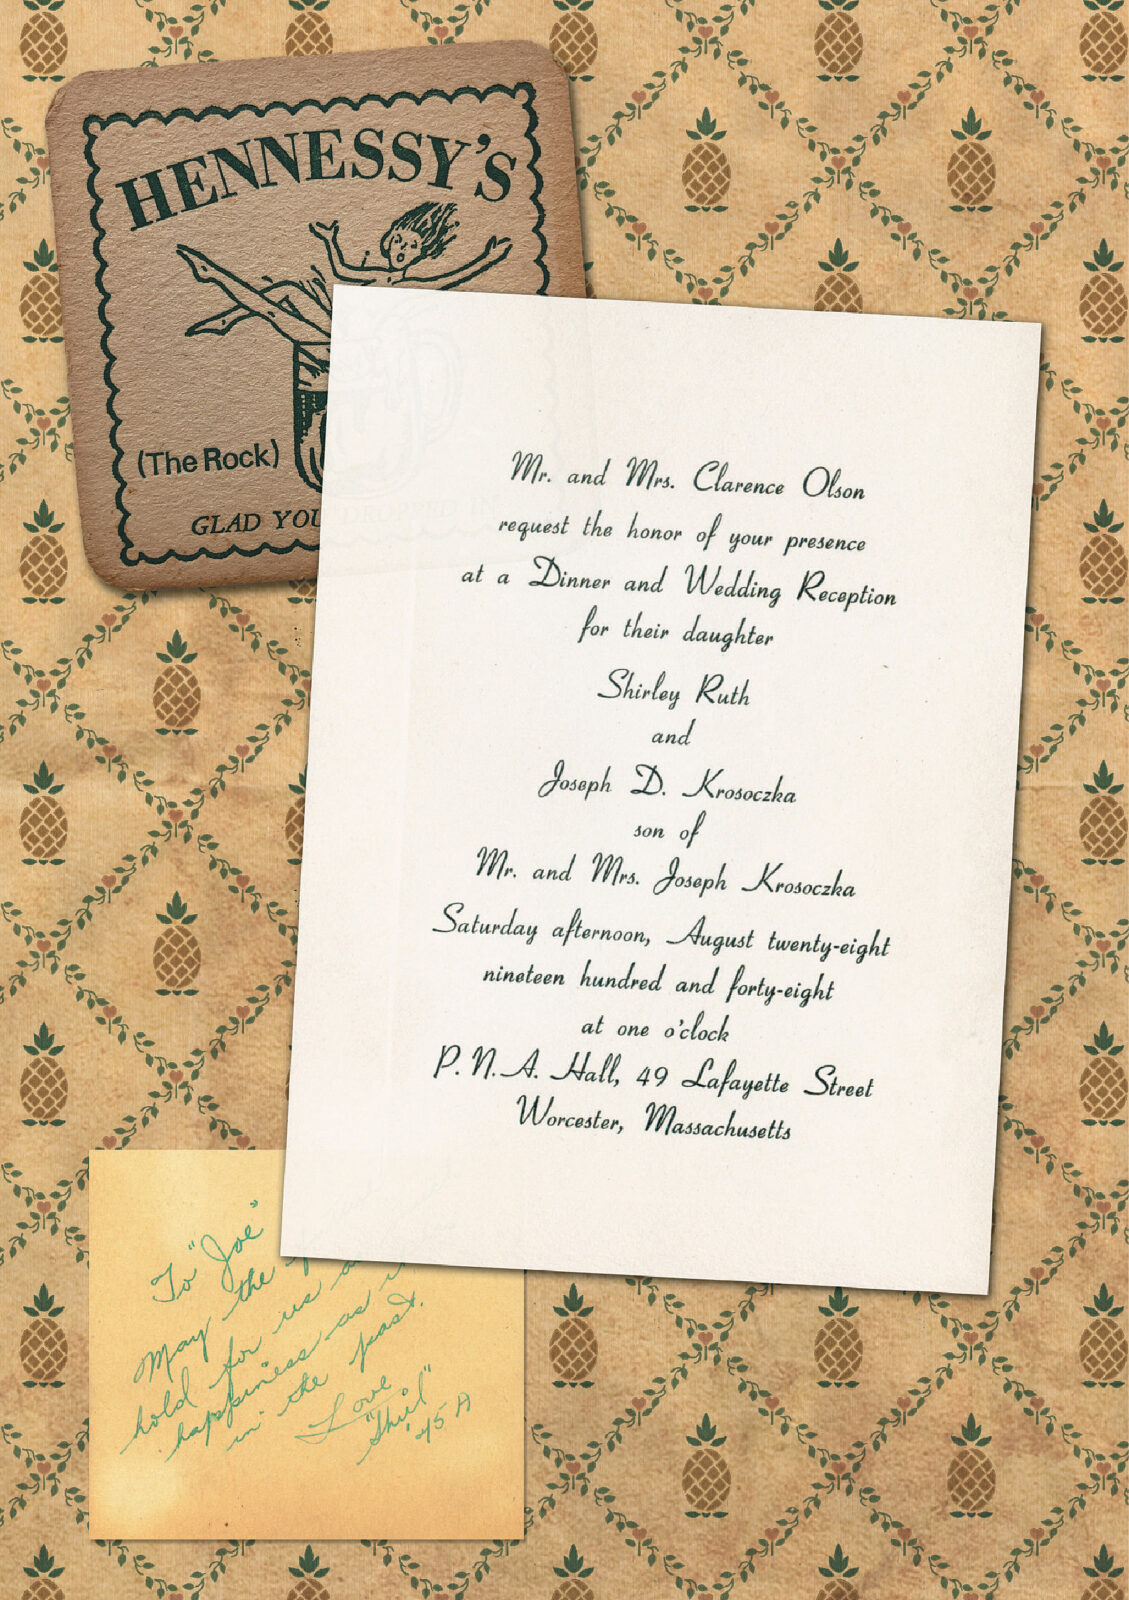 HENNESSY'S
(The Rock)
GLAD YOU
Mr. and Mrs. Clarence Olson
request the honor of your presence
at a Dinner and Wedding Reception
for their daughter
Shirley Ruth
and
Joseph D. Krosoczka
son of
Mr. and Mrs. Joseph Krosoczka
Saturday afternoon, August twenty-eight
nineteen hundred and forty-eight
at one o'clock
P. N. A. Hall, 49 Lafayette Street
Worcester, Massachusetts
To "Joe"
May the
hold for us
happiness as
in the past.
Love
"Shirl"
45 A